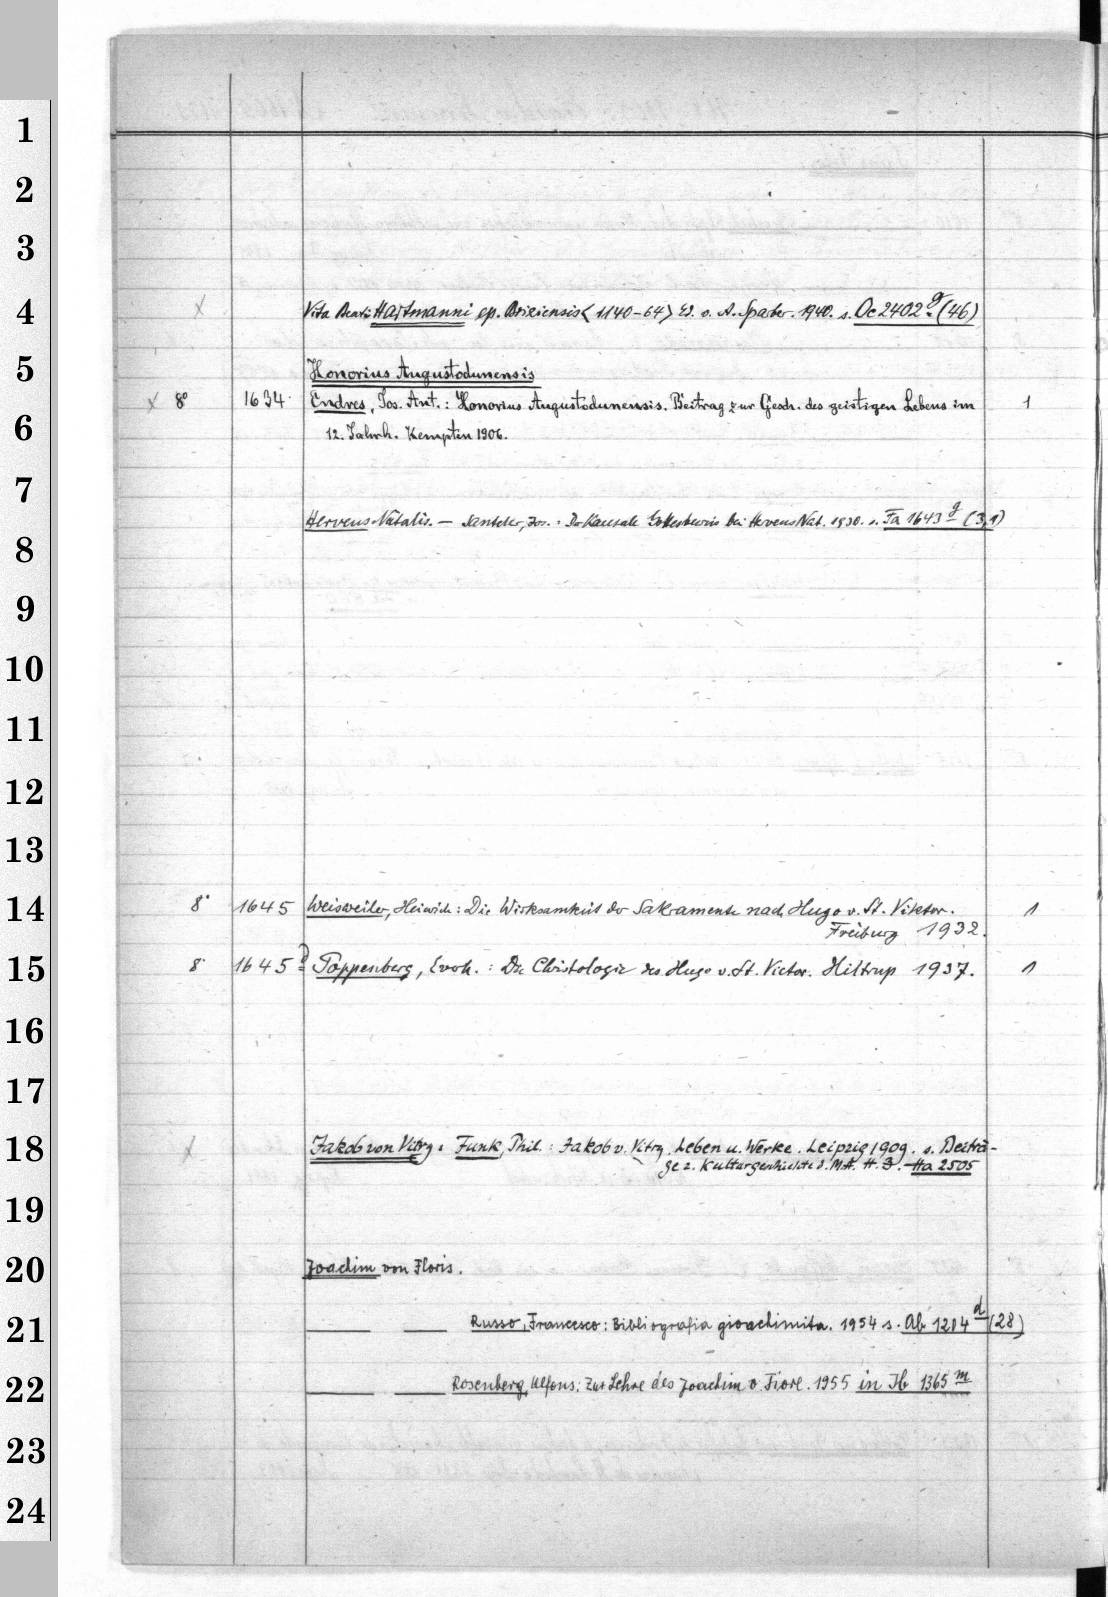 1
2
3
4
x Vita Beati Hartmanni ep. Brixiensis <1140-64> Ed. v. A. Sparber. 1940. s. Oc 2402 g (46)
5
Honorius Augustodunensis
x 8° 1634 Endres, Jos. Ant.: Honorius Augustodunensis. Beitrag zur Gesch. des geistigen Lebens im 1
6
12. Jahrh. Kempten 1906.
7
Hervens Natalis. — Santeler, Jos.: Der Kausale Gottesbeweis bei Hervens Nat. 1930. s. Fa 1643 g (3,1)
8
9
10
11
12
13
14
8° 1645 Weisweiler, Heinrich: Die Wirksamkeit der Sakramente nach Hugo v. St. Viktor. 1
Freiburg 1932.
15
8° 1645 Poppenberg, Everh.: Die Christologie des Hugo v. St. Victor. Hiltrup 1937. 1
16
17
18
x Jakob von Vitry: Funk, Phil.: Jakob v. Vitry. Leben u. Werke. Leipzig 1909. s. Beiträ-
ge z. Kulturgeschichte d. MA. H. 3. Ha 2505
19
20
Joachim von Floris.
21
Russo, Francesco: Bibliografia gioachimita. 1954 s. Ab 1204 d (28)
22
Rosenberg, Alfons: Zur Lehre des Joachim v. Fiore. 1955 in Ib 1365 m
23
24